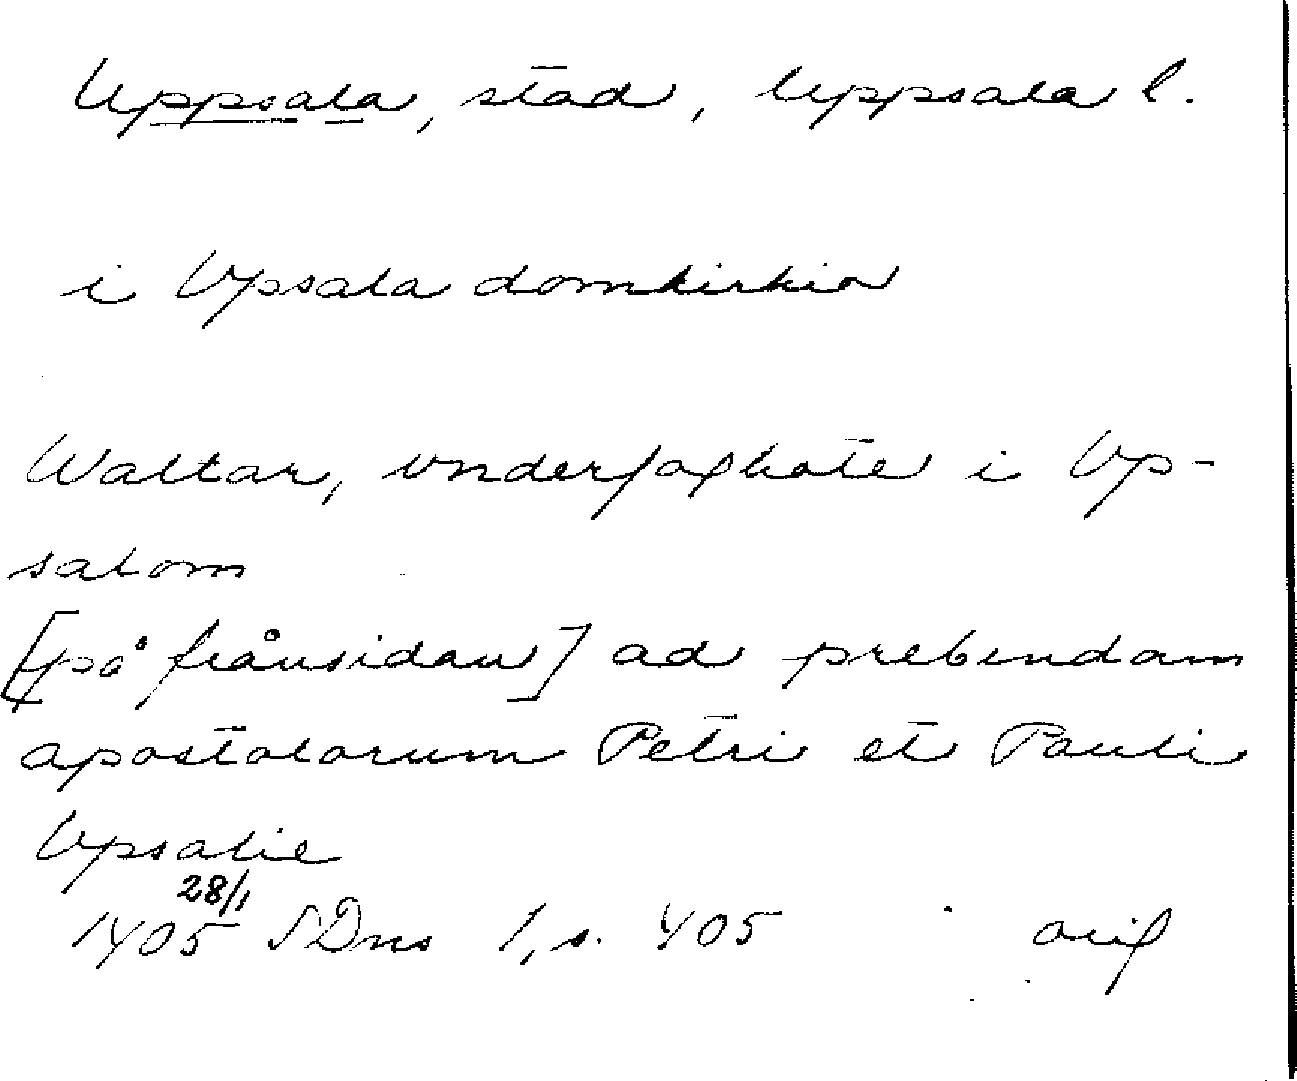 Uppsala, stad, Uppsala l.
i Vpsala domkirkio
Waltar, vnderfoghate i Vp-
salom
[på frånsidan] ad prebendam
apostolorum Petri et Pauli
Vpsalie
1405 28/1 SDns 1, s. 405 orig